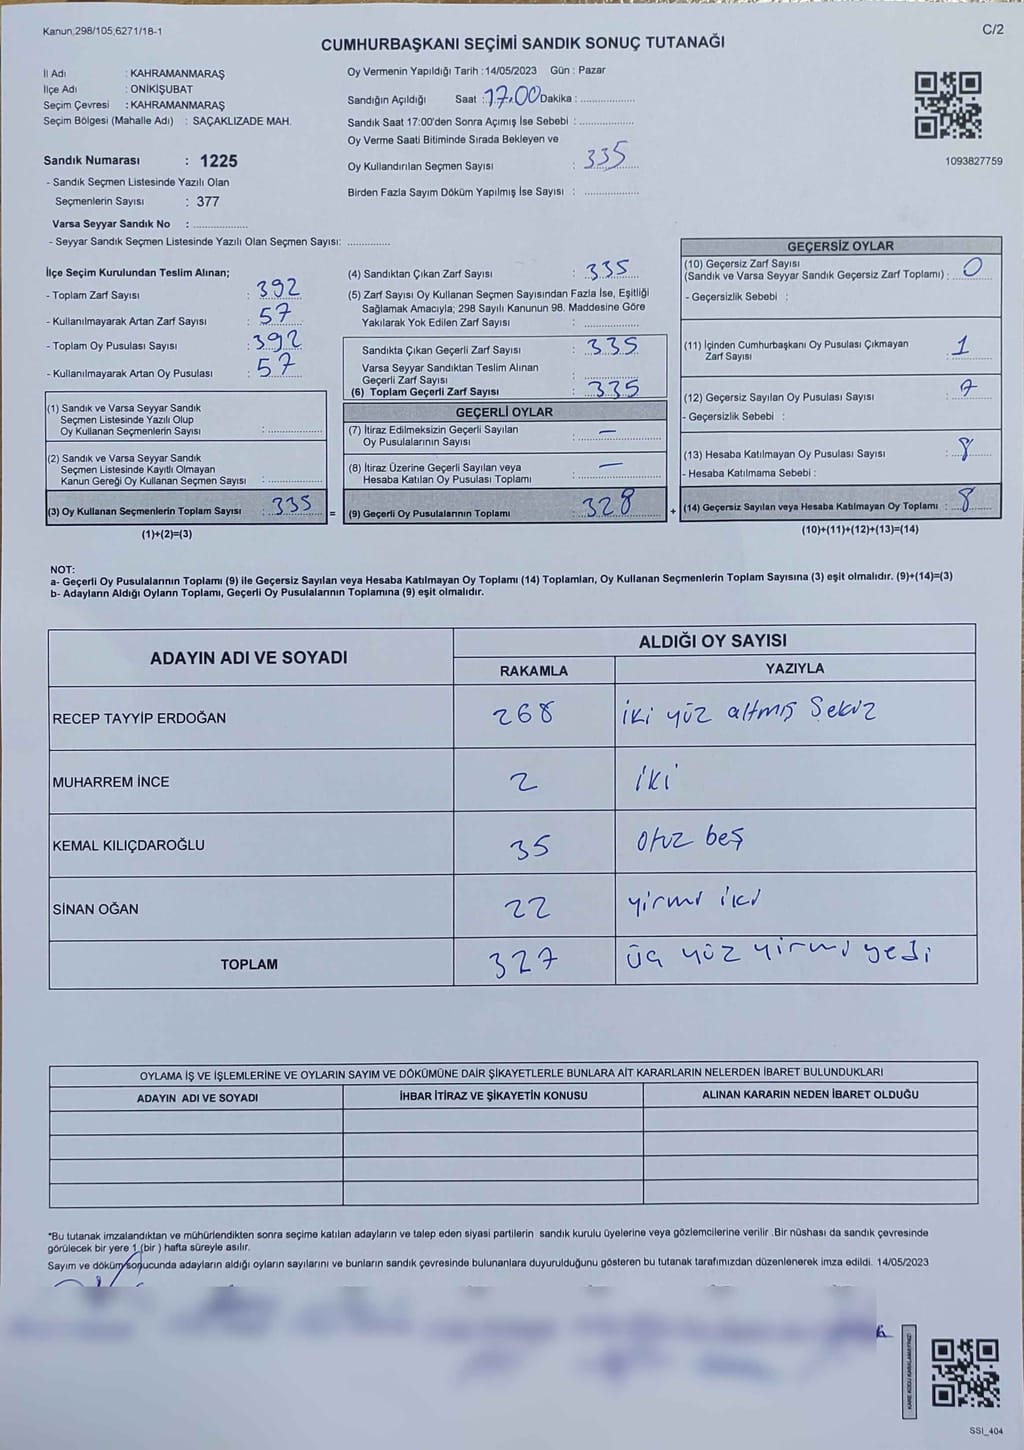 Kanun;298/105,6271/18-1
C/2
CUMHURBAŞKANI SEÇİMİ SANDIK SONUÇ TUTANAĞI
İl Adı : KAHRAMANMARAŞ
İlçe Adı : ONİKİŞUBAT
Seçim Çevresi : KAHRAMANMARAŞ
Seçim Bölgesi (Mahalle Adı) : SAÇAKLIZADE MAH.
Sandık Numarası : 1225
- Sandık Seçmen Listesinde Yazılı Olan
Seçmenlerin Sayısı : 377
Varsa Seyyar Sandık No : ................
- Seyyar Sandık Seçmen Listesinde Yazılı Olan Seçmen Sayısı: .............
Oy Vermenin Yapıldığı Tarih :14/05/2023 Gün : Pazar
Sandığın Açıldığı Saat :17.00 Dakika : ................
Sandık Saat 17:00'den Sonra Açımış İse Sebebi : ................
Oy Verme Saati Bitiminde Sırada Bekleyen ve
Oy Kullandırılan Seçmen Sayısı : 335
Birden Fazla Sayım Döküm Yapılmış İse Sayısı : ................
1093827759
İlçe Seçim Kurulundan Teslim Alınan;
- Toplam Zarf Sayısı : 392
- Kullanılmayarak Artan Zarf Sayısı : 57
- Toplam Oy Pusulası Sayısı : 392
- Kullanılmayarak Artan Oy Pusulası : 57
(1) Sandık ve Varsa Seyyar Sandık
Seçmen Listesinde Yazılı Olup
Oy Kullanan Seçmenlerin Sayısı : ................
(2) Sandık ve Varsa Seyyar Sandık
Seçmen Listesinde Kayıtlı Olmayan
Kanun Gereği Oy Kullanan Seçmen Sayısı : ................
(3) Oy Kullanan Seçmenlerin Toplam Sayısı : 335 =
(1)+(2)=(3)
(4) Sandıktan Çıkan Zarf Sayısı : 335
(5) Zarf Sayısı Oy Kullanan Seçmen Sayısından Fazla İse, Eşitliği
Sağlamak Amacıyla; 298 Sayılı Kanunun 98. Maddesine Göre
Yakılarak Yok Edilen Zarf Sayısı : ................
Sandıkta Çıkan Geçerli Zarf Sayısı : 335
Varsa Seyyar Sandıktan Teslim Alınan
Geçerli Zarf Sayısı : ................
(6) Toplam Geçerli Zarf Sayısı : 335
GEÇERLİ OYLAR
(7) İtiraz Edilmeksizin Geçerli Sayılan
Oy Pusulalarının Sayısı : —
(8) İtiraz Üzerine Geçerli Sayılan veya
Hesaba Katılan Oy Pusulası Toplamı : —
(9) Geçerli Oy Pusulalarının Toplamı : 328 +
GEÇERSİZ OYLAR
(10) Geçersiz Zarf Sayısı
(Sandık ve Varsa Seyyar Sandık Geçersiz Zarf Toplamı) : 0
- Geçersizlik Sebebi :
(11) İçinden Cumhurbaşkanı Oy Pusulası Çıkmayan
Zarf Sayısı : 1
(12) Geçersiz Sayılan Oy Pusulası Sayısı : 7
- Geçersizlik Sebebi :
(13) Hesaba Katılmayan Oy Pusulası Sayısı : 8
- Hesaba Katılmama Sebebi :
(14) Geçersiz Sayılan veya Hesaba Katılmayan Oy Toplamı : 8
(10)+(11)+(12)+(13)=(14)
NOT:
a- Geçerli Oy Pusulalarının Toplamı (9) ile Geçersiz Sayılan veya Hesaba Katılmayan Oy Toplamı (14) Toplamları, Oy Kullanan Seçmenlerin Toplam Sayısına (3) eşit olmalıdır. (9)+(14)=(3)
b- Adayların Aldığı Oyların Toplamı, Geçerli Oy Pusulalarının Toplamına (9) eşit olmalıdır.
ADAYIN ADI VE SOYADI ALDIĞI OY SAYISI
RAKAMLA YAZIYLA
RECEP TAYYİP ERDOĞAN 268 iki yüz altmış Sekiz
MUHARREM İNCE 2 iki
KEMAL KILIÇDAROĞLU 35 otuz beş
SİNAN OĞAN 22 yirmi iki
TOPLAM 327 üç yüz yirmi yedi
OYLAMA İŞ VE İŞLEMLERİNE VE OYLARIN SAYIM VE DÖKÜMÜNE DAİR ŞİKAYETLERLE BUNLARA AİT KARARLARIN NELERDEN İBARET BULUNDUKLARI
ADAYIN ADI VE SOYADI İHBAR İTİRAZ VE ŞİKAYETİN KONUSU ALINAN KARARIN NEDEN İBARET OLDUĞU
*Bu tutanak imzalandıktan ve mühürlendikten sonra seçime katılan adayların ve talep eden siyasi partilerin sandık kurulu üyelerine veya gözlemcilerine verilir .Bir nüshası da sandık çevresinde
görülecek bir yere 1 (bir ) hafta süreyle asılır.
Sayım ve döküm sonucunda adayların aldığı oyların sayılarını ve bunların sandık çevresinde bulunanlara duyurulduğunu gösteren bu tutanak tarafımızdan düzenlenerek imza edildi. 14/05/2023
KARE KODU KARALAMAYINIZ!
SSI_404